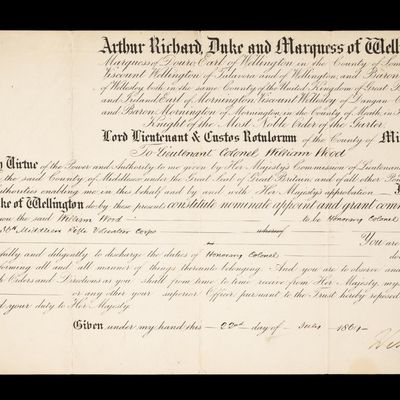 Arthur Richard, Duke and Marquess of Well
Marquess of Douro, Earl of Wellington in the County of Som
Viscount Wellington of Talavera and of Wellington, and Baron
of Wellesley both in the same County of the United Kingdom of Great
and Ireland Earl of Mornington Viscount Wellesley of Dangan C
and Baron Mornington of Mornington, in the County of Meath in
Knight of the Most Noble Order of the Garter
Lord Lientenant & Custos Rotulorum of the County of Mi
To Lieutenant Colonel William Wood
y Virtue of the Power and Authority to me given by Her Majesty's Commission of Lieutenan
the said County of Middlesex under the Great Seal of Great Britain and of all other Po
uthorities enabling me in this behalf and by and with Her Majesty's approbation
ke of Wellington do by these presents constitute nominate appoint and grant com
you the said William Wood to be Honorary Colonel
Middlesex Rifle Volunteer Corps whereof
You are
fully and diligently to discharge the duties of Honorary Colonel
orming all and all manner of things thereunto belonging. And you are to observe and
h Orders and Directions as you shall from time to time receive from Her Majesty, my
or any other your superior Officer, pursuant to the Trust hereby reposed
d your duty to Her Majesty.
Given under my hand this 22nd day of July 186